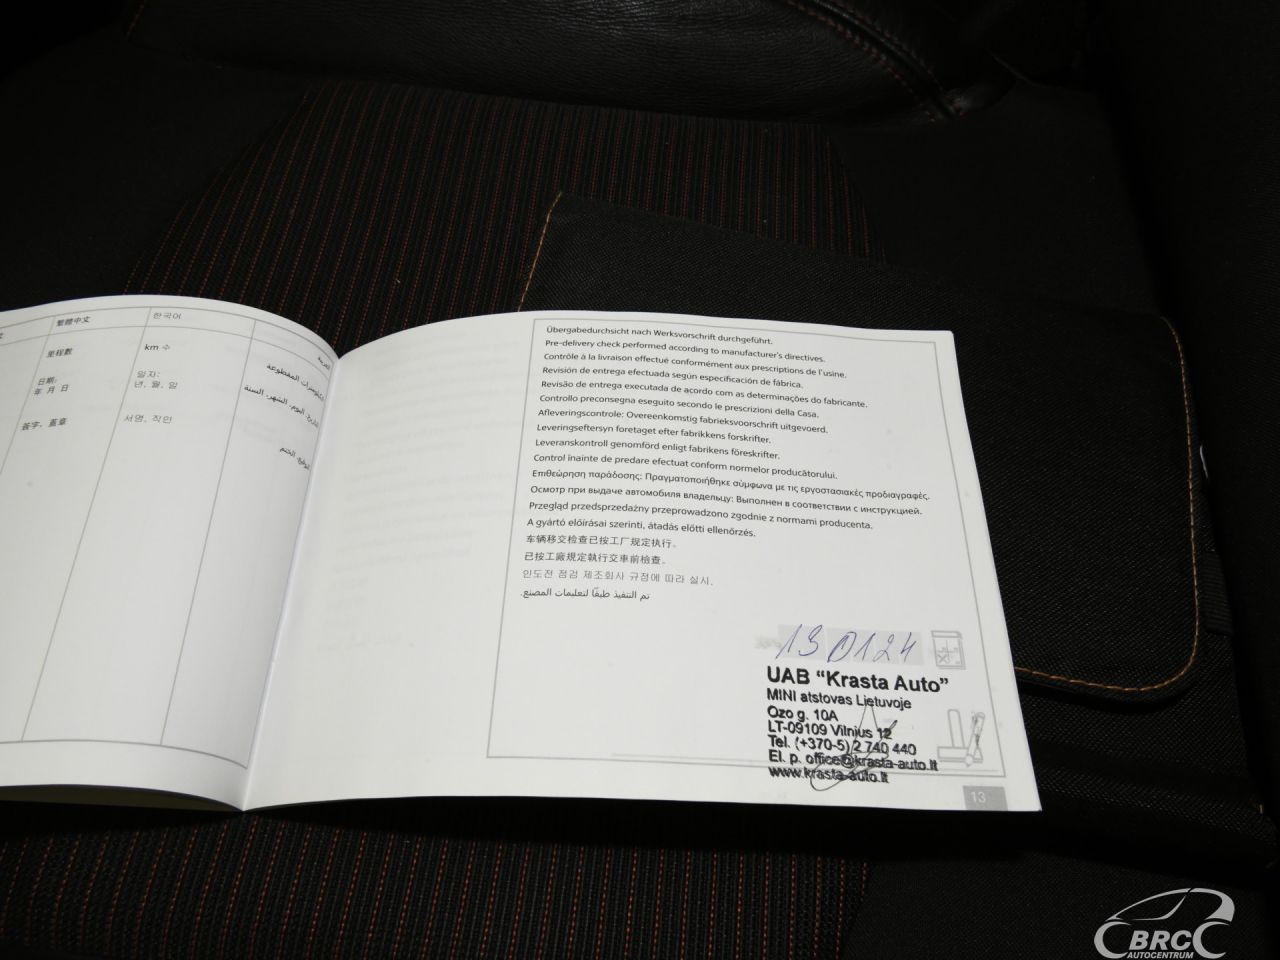 繁體中文
한국어
العربية
里程數
km 수
الكيلومترات المقطوعة
日期:
年 月 日
일자:
년, 월, 일
التاريخ: اليوم، الشهر، السنة
簽字, 蓋章
서명, 직인
توقيع، الختم
Übergabedurchsicht nach Werksvorschrift durchgeführt.
Pre-delivery check performed according to manufacturer's directives.
Contrôle à la livraison effectué conformément aux prescriptions de l'usine.
Revisión de entrega efectuada según especificación de fábrica.
Revisão de entrega executada de acordo com as determinações do fabricante.
Controllo preconsegna eseguito secondo le prescrizioni della Casa.
Afleveringscontrole: Overeenkomstig fabrieksvoorschrift uitgevoerd.
Leveringseftersyn foretaget efter fabrikkens forskrifter.
Leveranskontroll genomförd enligt fabrikens föreskrifter.
Control înainte de predare efectuat conform normelor producătorului.
Επιθεώρηση παράδοσης: Πραγματοποιήθηκε σύμφωνα με τις εργοστασιακές προδιαγραφές.
Осмотр при выдаче автомобиля владельцу: Выполнен в соответствии с инструкцией.
Przegląd przedsprzedażny przeprowadzono zgodnie z normami producenta.
A gyártó előírásai szerinti, átadás előtti ellenőrzés.
车辆移交检查已按工厂规定执行。
已按工廠規定執行交車前檢查。
인도전 점검 제조회사 규정에 따라 실시.
تم التنفيذ طبقًا لتعليمات المصنع.
130124
UAB “Krasta Auto”
MINI atstovas Lietuvoje
Ozo g. 10A
LT-09109 Vilnius 12
Tel. (+370-5) 2 740 440
El. p. office@krasta-auto.lt
www.krasta-auto.lt
13
BRC
AUTOCENTRUM